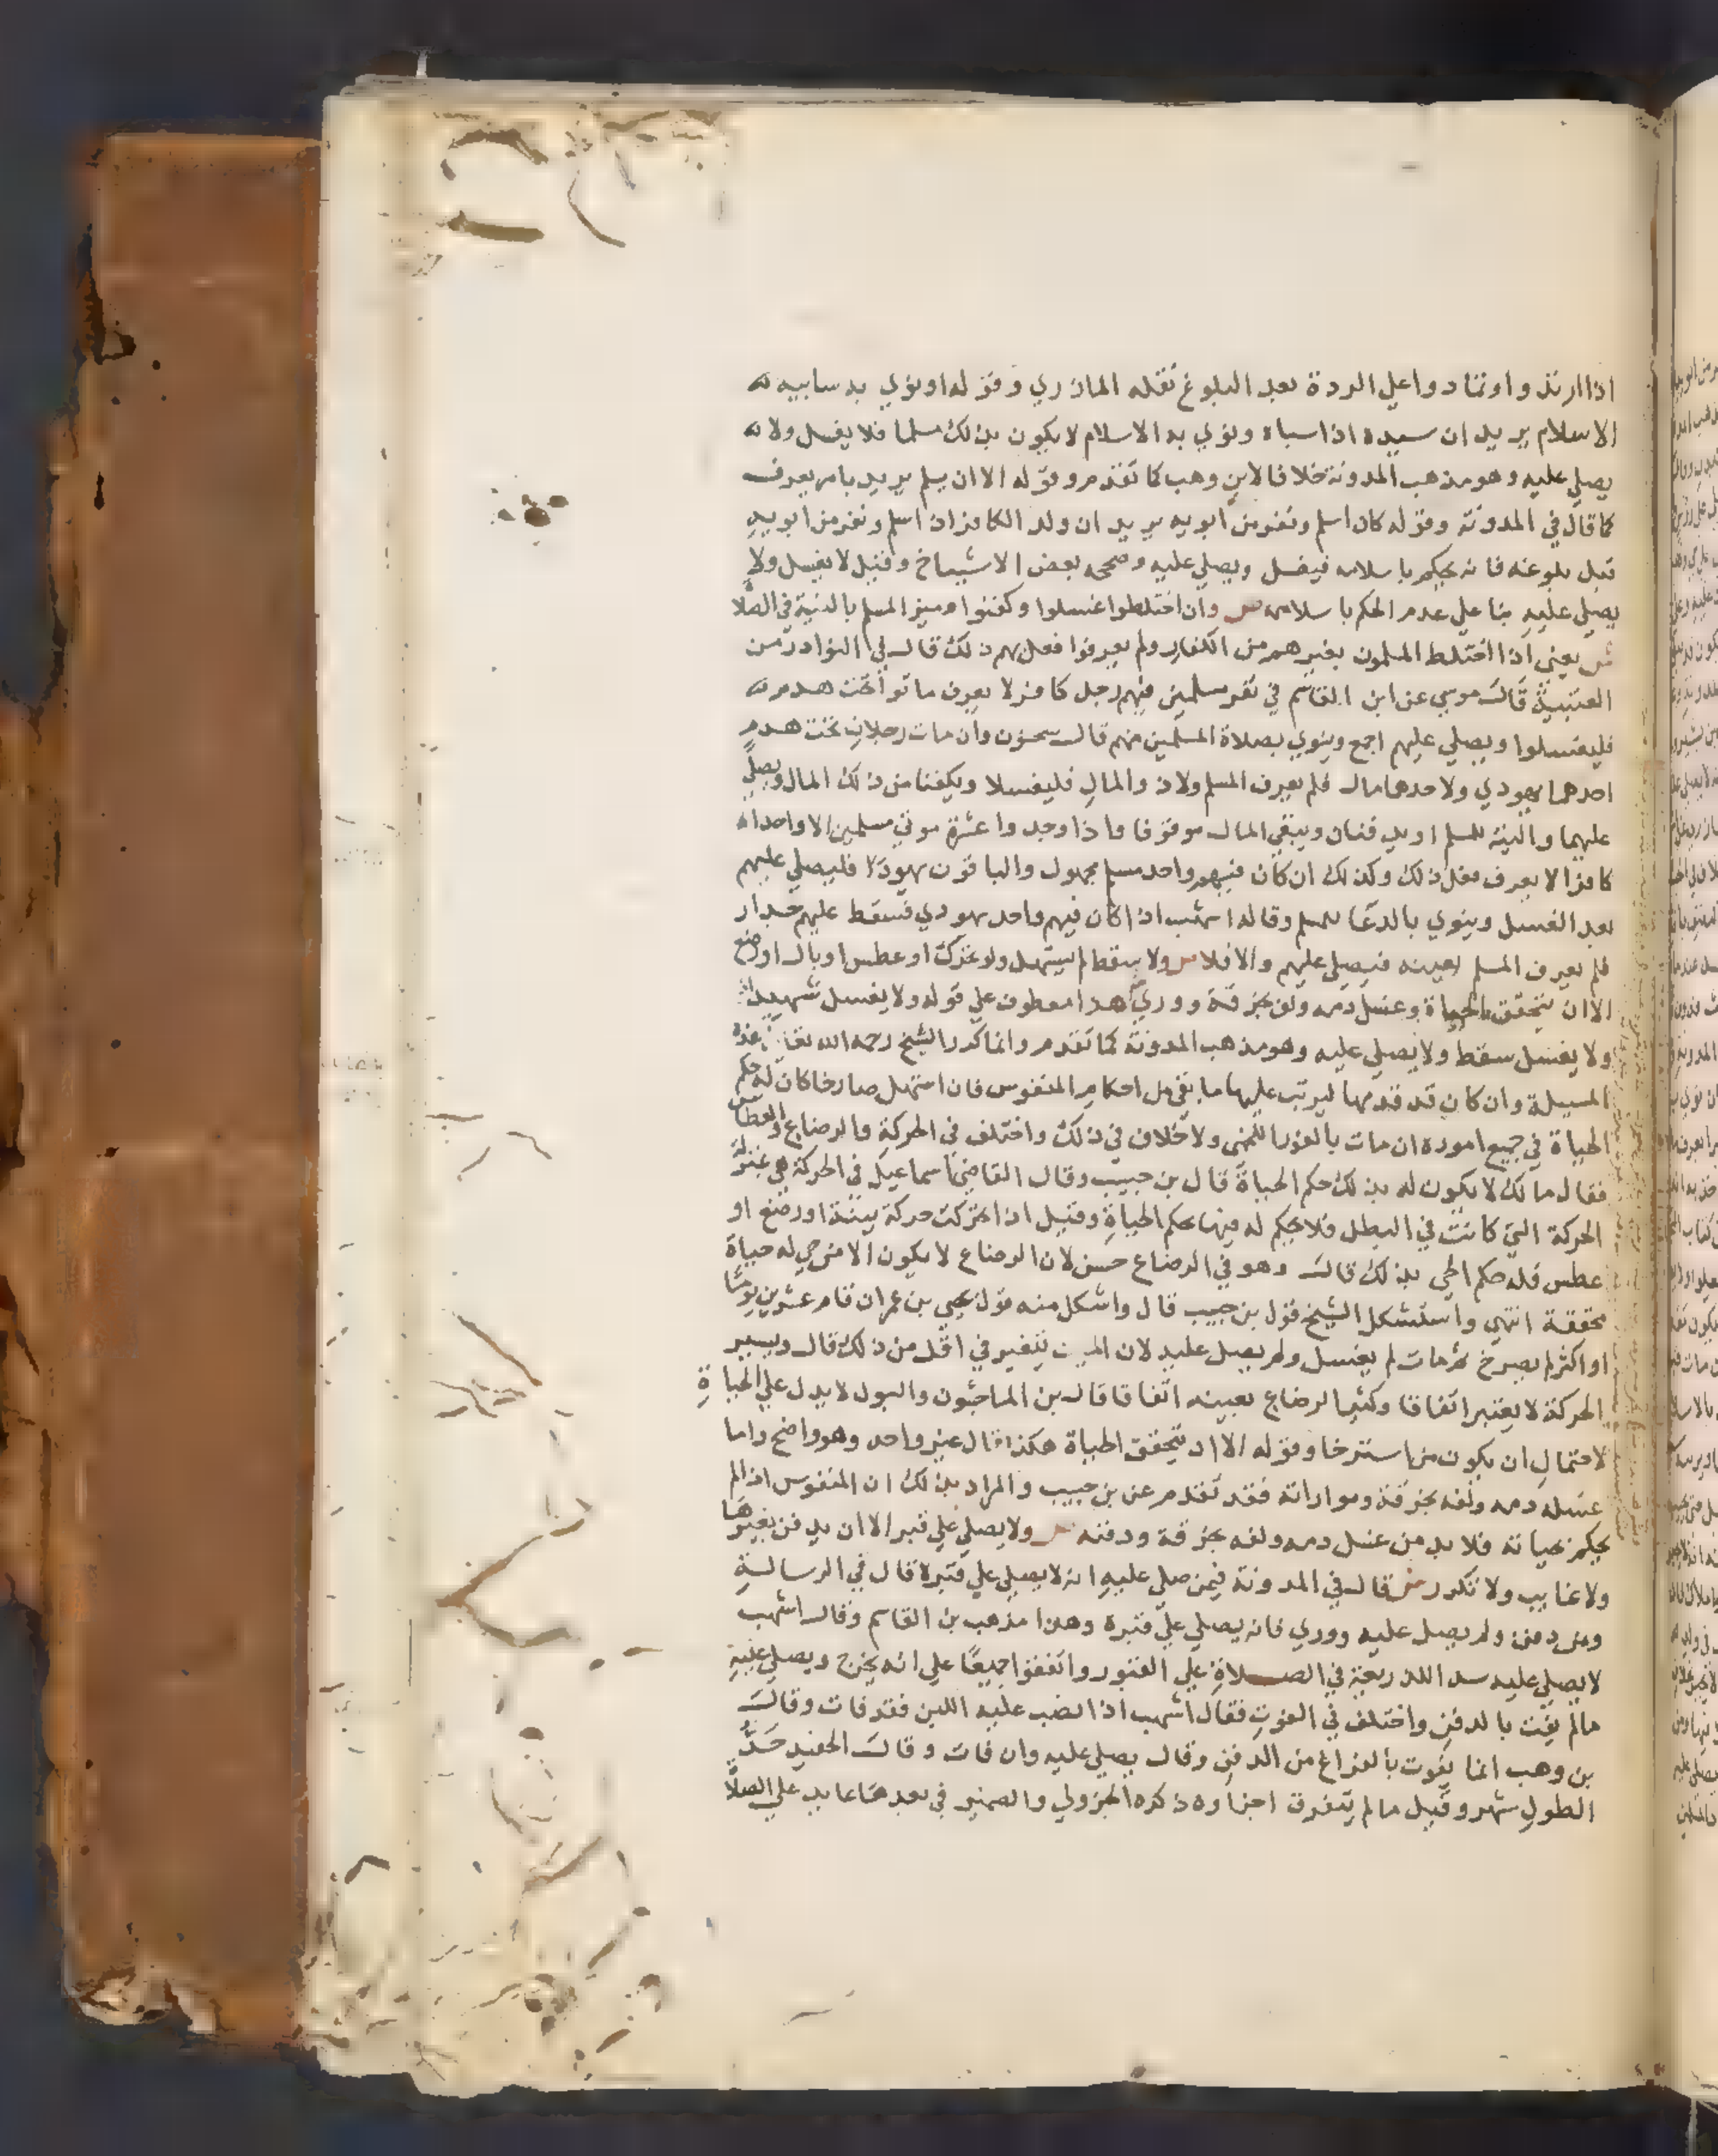 اذا ارتد و او تمادوا علي الردة بعد البلوغ نقله المازري وقوله او نوي به سابيه
الاسلام يريد ان سيده اذا سباه ونوي به الاسلام لا يكون بذلك مسلما فلا يغسل ولا
يصلي عليه وهو مذهب المدونة خلافا لابن وهب كما تقدم وقوله الا ان يسلم يريد بامر يعرف
كما قال في المدونة وقوله كان اسلم ونفر من ابويه يريد ان ولد الكافر اذا اسلم ونفر من ابويه
قبل بلوغه فانه يحكم باسلامه فيغسل ويصلي عليه وصححه بعض الاشياخ وقيل لا يغسل ولا
يصلي عليه بنا علي عدم الحكم باسلامه ص وان اختلطوا غسلوا وكفنوا وميز المسلم بالنية في الصلا
ش يعني اذا اختلط المسلمون بغيرهم من الكفار ولم يعرفوا فعل بهم ذلك قال في النوادر من
العتبية قال موسي عن ابن القاسم في نفر مسلمين فيهم رجل كافر لا يعرف ماتوا تحت هدم
فليغسلوا ويصلي عليهم اجمع وينوي بصلاة المسلمين منهم قال سحنون وان مات رجلان تحت هدم
احدهما يهودي ولاحدهما مال فلم يعرف المسلم ولا ذو المال فليغسلا ويكفنا من ذلك المال ويصلي
عليهما والنية للمسلم او يدفنان ويبقي المال موقوفا واذا وجدوا عشرة موتي مسلمين الا واحدا
كافرا لا يعرف فعل ذلك وكذلك ان كان فيهم واحد مسلم مجهول والباقون يهودا فليصلي عليهم
بعد الغسل وينوي بالدعا للمسلم وقاله اشهب اذا كان فيهم واحد يهودي فسقط عليهم جدار
فلم يعرف المسلم بعينه فيصلي عليهم والا فلا ص ولا سقط لم يستهل ولو تحرك او عطس او بال او رضع
الا ان يتحقق الحياة وغسل دمه ولف بخرقة ووري ش هذا معطوف علي قوله ولا يغسل شهيد
ولا يغسل سقط ولا يصلي عليه وهو مذهب المدونة كما تقدم وانما كرر الشيخ رحمه الله هذه
المسيلة وان كان قد قدمها ليرتب عليها ما بقي من احكام المنفوس فان استهل صارخا كان له حكم
الحياة في جميع اموره ان مات بالفور اللخمي ولا خلاف في ذلك واختلف في الحركة والرضاع والعطاس
فقال مالك لا يكون له بذلك حكم الحياة قال بن حبيب وقال القاضي اسماعيل في الحركة هي بمنزلة
الحركة التي كانت في البطن فلا يحكم له فيها بحكم الحياة وقيل اذا تحركت حركة بينة او رضع او
عطس فله حكم الحي بذلك قال وهو في الرضاع حسن لان الرضاع لا يكون الا من حي له حياة
محققة انتهي واستشكل الشيخ قول بن حبيب قال واشكل منه قول يحيي بن عمران قام عشرين يوما
او اكثر لم يصرخ ثم مات لم يغسل ولم يصل عليه لان الميت يتغير في اقل من ذلك قال ويسير
الحركة لا يعتبر اتفاقا وكثير الرضاع يعينه اتفاقا قال بن الماجشون والبول لا يدل علي الحياة
لاحتمال ان يكون من استرخا وقوله الا ان يتحقق الحياة هكذا قال غير واحد وهو واضح واما
غسله دمه ولفه بخرقة ومواراته فقد تقدم عن بن حبيب والمراد بذلك ان المنفوس اذا لم
يحكم بحياته فلا بد من غسل دمه ولفه بخرقة ودفنه ص ولا يصلي علي قبر الا ان يدفن بغيرها
ولا غايب ولا تكرر ش قال في المدونة فيمن صلي عليه انه لا يصلي علي قبره قال في الرسالة
ومن دفن ولم يصل عليه ووري فانه يصلي علي قبره وهذا مذهب بن القاسم وقال اشهب
لا يصلي عليه سد اللذريعة في الصلاة علي القبور واتفقوا جميعا علي انه يخرج ويصلي عليه
مالم يفت بالدفن واختلف في الفوت فقال اشهب اذا نصب عليه اللبن فقد فات وقال
بن وهب انما يفوت بالفراغ من الدفن وقال يصلي عليه وان فات وقال الحفيد حد
الطول شهر وقيل مالم يتفرق اجزاوه ذكره الجزولي والضمير في بعدها عايد علي الصلا